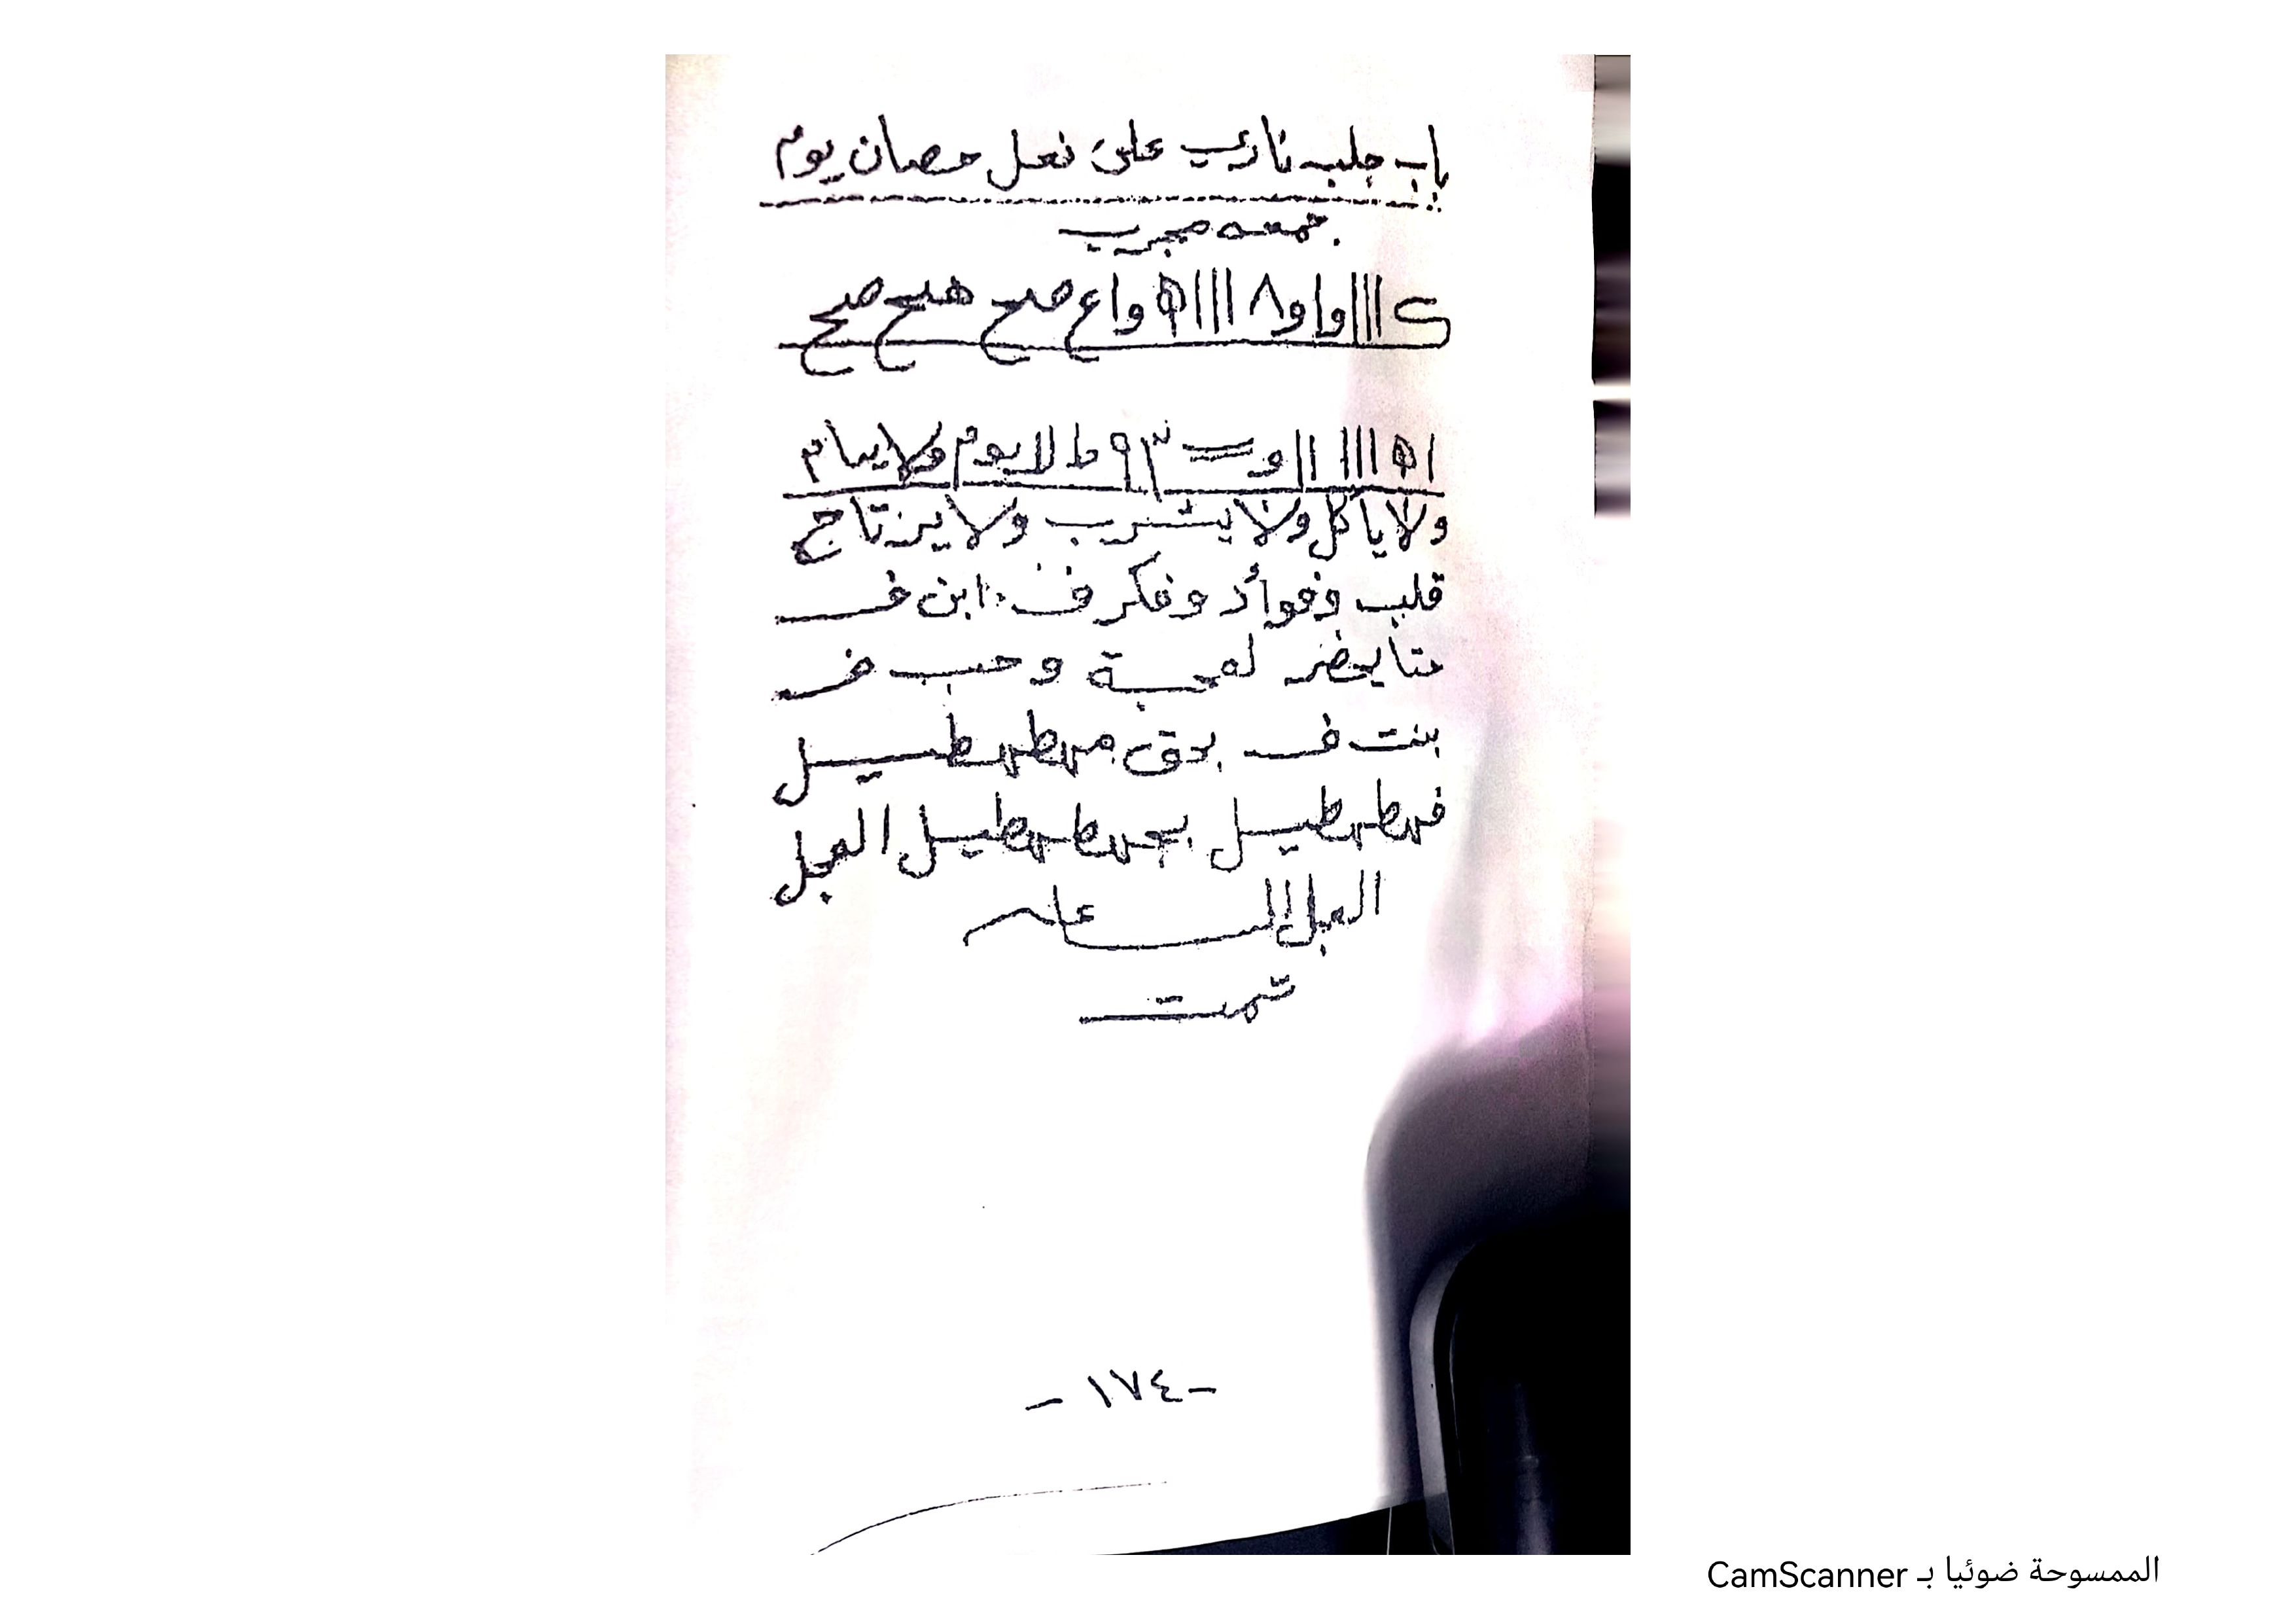 باب جلب ناري على نعل حصان يوم
جمعه مجرب
ااا واو٨ ااا واع صح هيح صح
ا ااا اا و ٩٣ ط لا يوم ولا ينام
ولا ياكل ولا يشرب ولا يرتاح
قلب وفوأد وفكر ف ابن ف
حتا يحضر لمحبة وحب ف
بنت ف بحق مهطهطيل
فهطهطيل بجهطهطيل العجل
العجل الساعه
تمت
- ١٧٤ -
الممسوحة ضوئيا بـ CamScanner